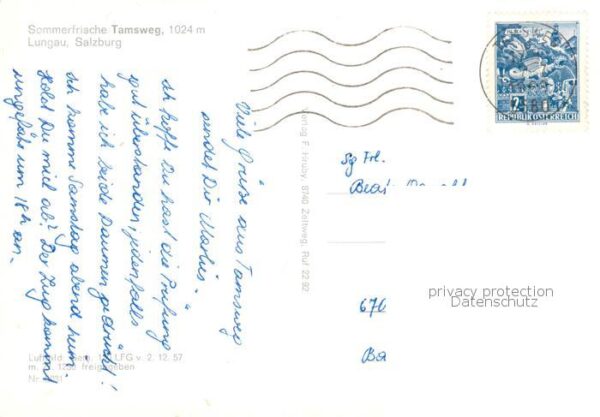 Sommerfrische Tamsweg, 1024 m
Lungau, Salzburg
REPUBLIK ÖSTERREICH
Viele Grüsse aus Tamsweg
sendet Dir Marlies.
Ich hoffe Du hast die Prüfung
gut überstanden, jedenfalls
habe ich beide Daumen gedrückt!
Ich komme Samstag abend heim.
Holst Du mich ab? Der Zug kommt
ungefähr um 18h an.
Verlag F. Hruby, 8740 Zeltweg, Ruf 22 92
Sg Frl.
Beat
676
Ba
privacy protection
Datenschutz
LFG v. 2. 12. 57
freigegeben
Nr.